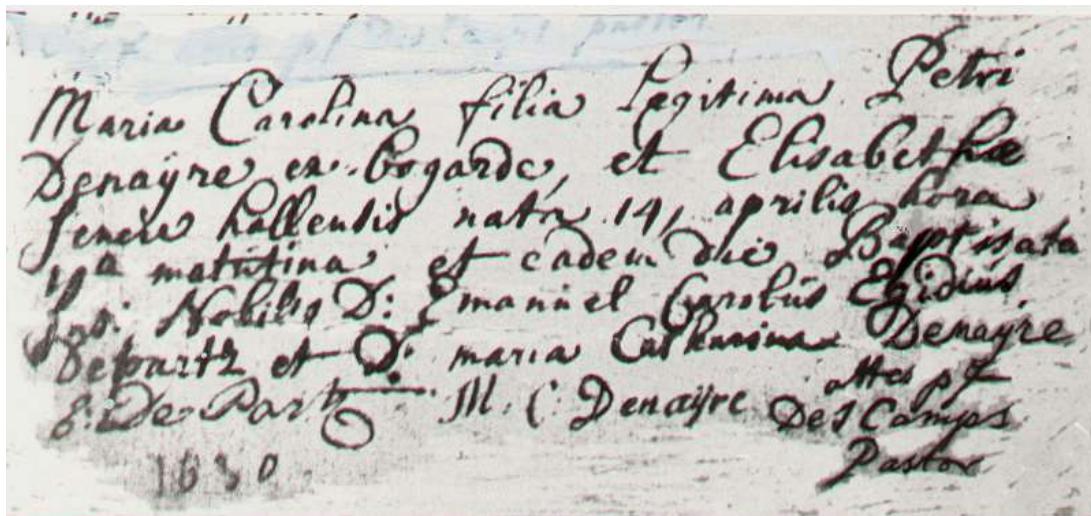 Maria Carolina filia Legitima Petri
Denaÿre ex bogarde, et Elisabethæ
senere hallensis nata 14, aprilis hora
4a matutina et eadem die Baptisata
Nobilis D: Emanuel Carolus Egidius
Departz et D. maria Catharina Denaÿre
E: De Partz M. C: Denaÿre attes
Des Camps
Pastor
1630